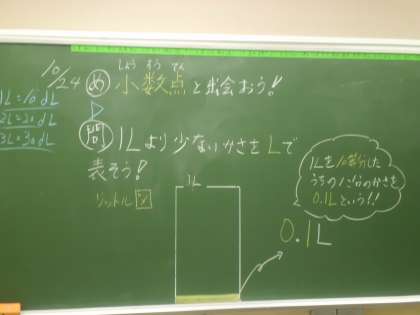 10/24
1L=10dL
2L=20dL
3L=30dL
しょう すう てん
め 小数点と出会おう!
問 1Lより少ないかさをLで
表そう!
リットル
1L
1Lを10等分した
うちの1こ分のかさを
0.1Lという!!
0.1L